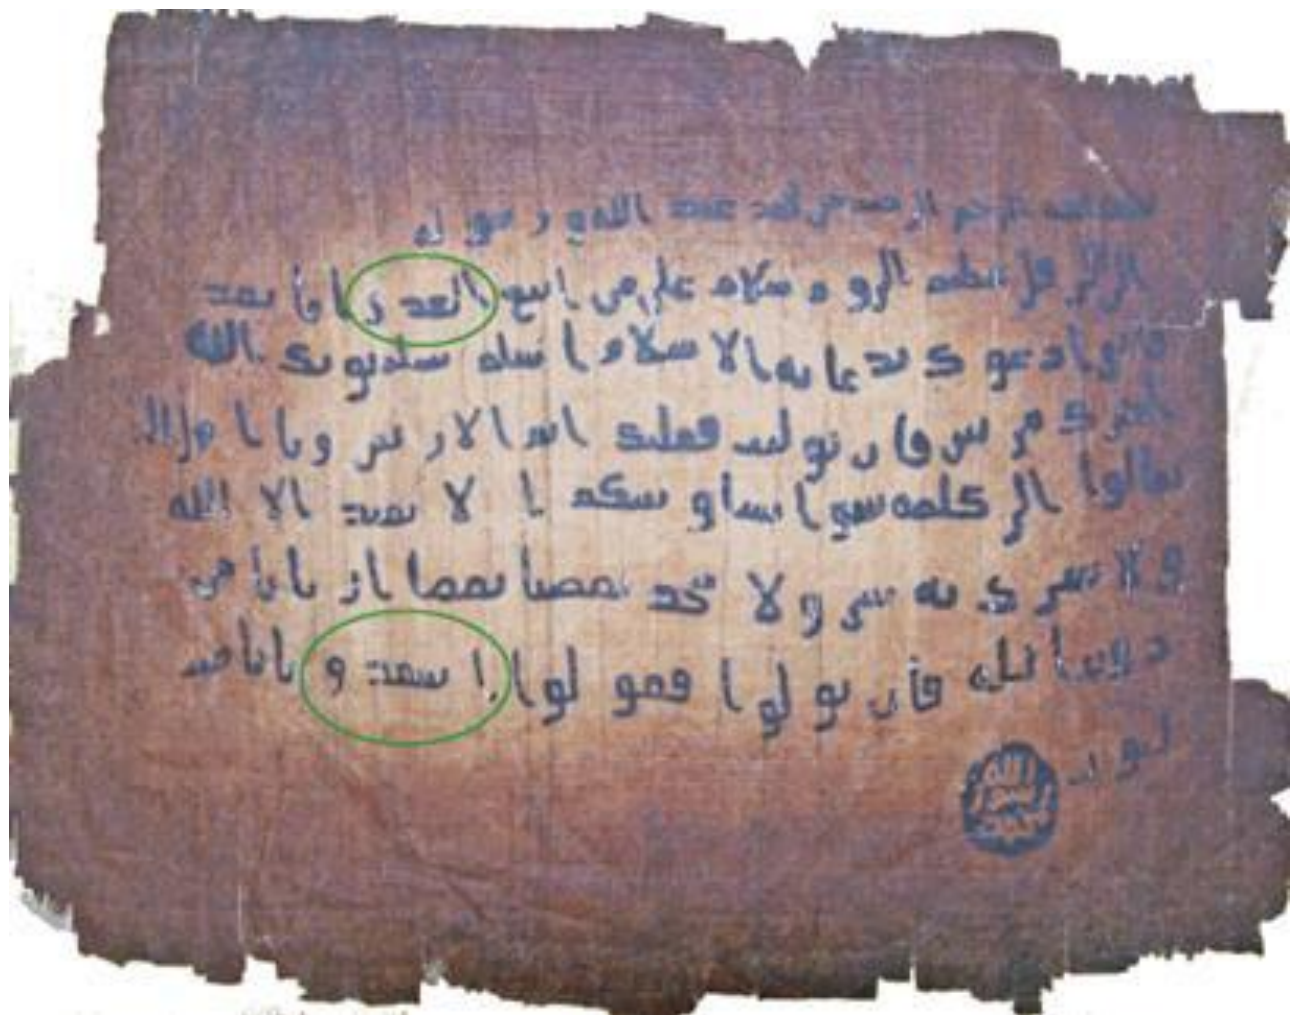 بسم الله الرحمن الرحيم من محمد عبد الله و رسوله
الى هرقل عظيم الروم سلام على من اتبع الهدى اما بعد
فانى ادعوك بدعاية الاسلام اسلم تسلم يوتك الله
اجرك مرتين فان توليت فعليك اثم الاريسين ويا اهل
تعالوا الى كلمة سوا بيننا و بينكم الا نعبد الا الله
ولا نشرك به شيا ولا يتخذ بعضنا بعضا اربابا من
دون الله فان تولوا فقولوا اشهدوا بانا مسلمون
الله
رسول
محمد